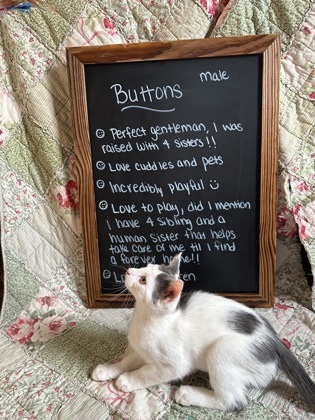 male
Buttons
Perfect gentleman, I was
raised with 4 sisters!!
Love cuddles and pets
Incredibly playful
Love to play, did I mention
I have 4 sibling and a
human sister that helps
take care of me till I find
a forever home!!